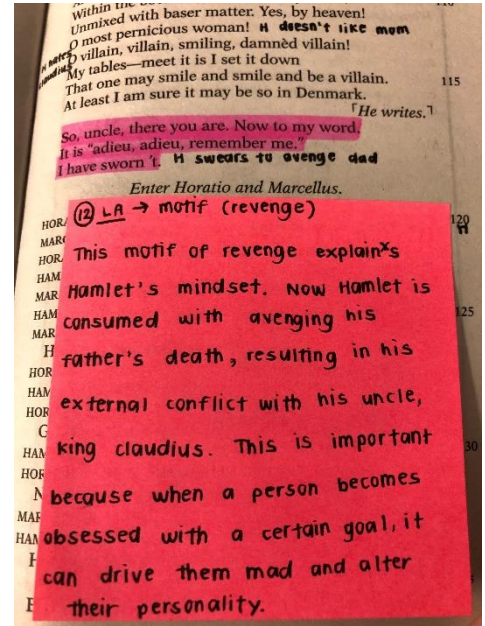 Within the
Unmixed with baser matter. Yes, by heaven!
O most pernicious woman! H doesn't like mom
H hates claudius O villain, villain, smiling, damnèd villain!
My tables—meet it is I set it down
That one may smile and smile and be a villain. 115
At least I am sure it may be so in Denmark.
⌜He writes.⌝
So, uncle, there you are. Now to my word.
It is “adieu, adieu, remember me.”
I have sworn 't. H swears to avenge dad
Enter Horatio and Marcellus.
⑫ LA → motif (revenge) 120
HOR
MAR
HOR
This motif of revenge explains
HAM
MAR
Hamlet's mindset. Now Hamlet is
HAM
consumed with avenging his 125
MAR
H
father's death, resulting in his
HOR
HAM
external conflict with his uncle,
HOR
king claudius. This is important 30
HAM
HOR
because when a person becomes
MAR
HAM
obsessed with a certain goal, it
H
can drive them mad and alter
their personality.